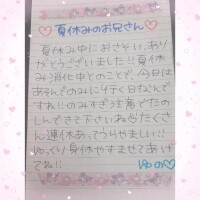 夏休みのお兄さん
夏休み中におさそい、あり
がとうございました!!夏休
み消化中とのことで、今日は
あそんでのみに行く日なんで
すね!!のみすぎ注意でたの
しんできて下さいねたくさ
ん連休あってうらやましい!!
ゆっくり身休やすませてあげ
てね!!
ゆの